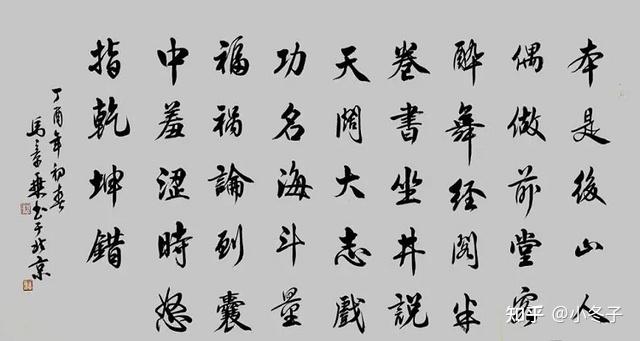 本是後山人
偶做前堂客
醉舞經閣半
卷書坐井說
天闊大志戲
功名海斗量
福禍論到囊
中羞澀時怒
指乾坤錯
丁酉年初春
馬書于北京
知乎 @小冬子